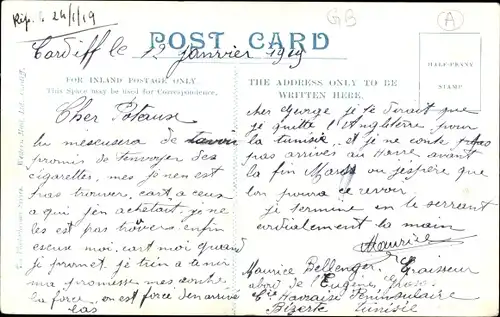 Rép. le 24/1/19
GB
A
Cardiff le 12 janvier 1919
POST CARD
HALF-PENNY
STAMP
FOR INLAND POSTAGE ONLY.
This Space may be used for Correspondence.
THE ADDRESS ONLY TO BE
WRITTEN HERE.
Cher Poteaux
tu mescusera de tavoir
promis de tenvoyer des
cigarettes, mes je nen est
pas trouver, cart a ceux
a qui j'en achetait je ne
les est pas trouvers enfin
escuse moi, cart moi quand
je promet je tien a tenir
ma promesse mes contre
la force, on est force d'en arrivé
las
cher George je te dirait que
je quitte l'Angleterre pour
la tunisie, et je ne conte pas
pas arrives au Havre avant
la fin Mars ou j'espère que
lon poura ce revoir.
je termine en te serrant
cordialement la main
Maurice
Maurice Bellenger Graisseur
abord de l'Eugène Grosos
Cie Havraise Péninsulaire
Bizerte Tunisie